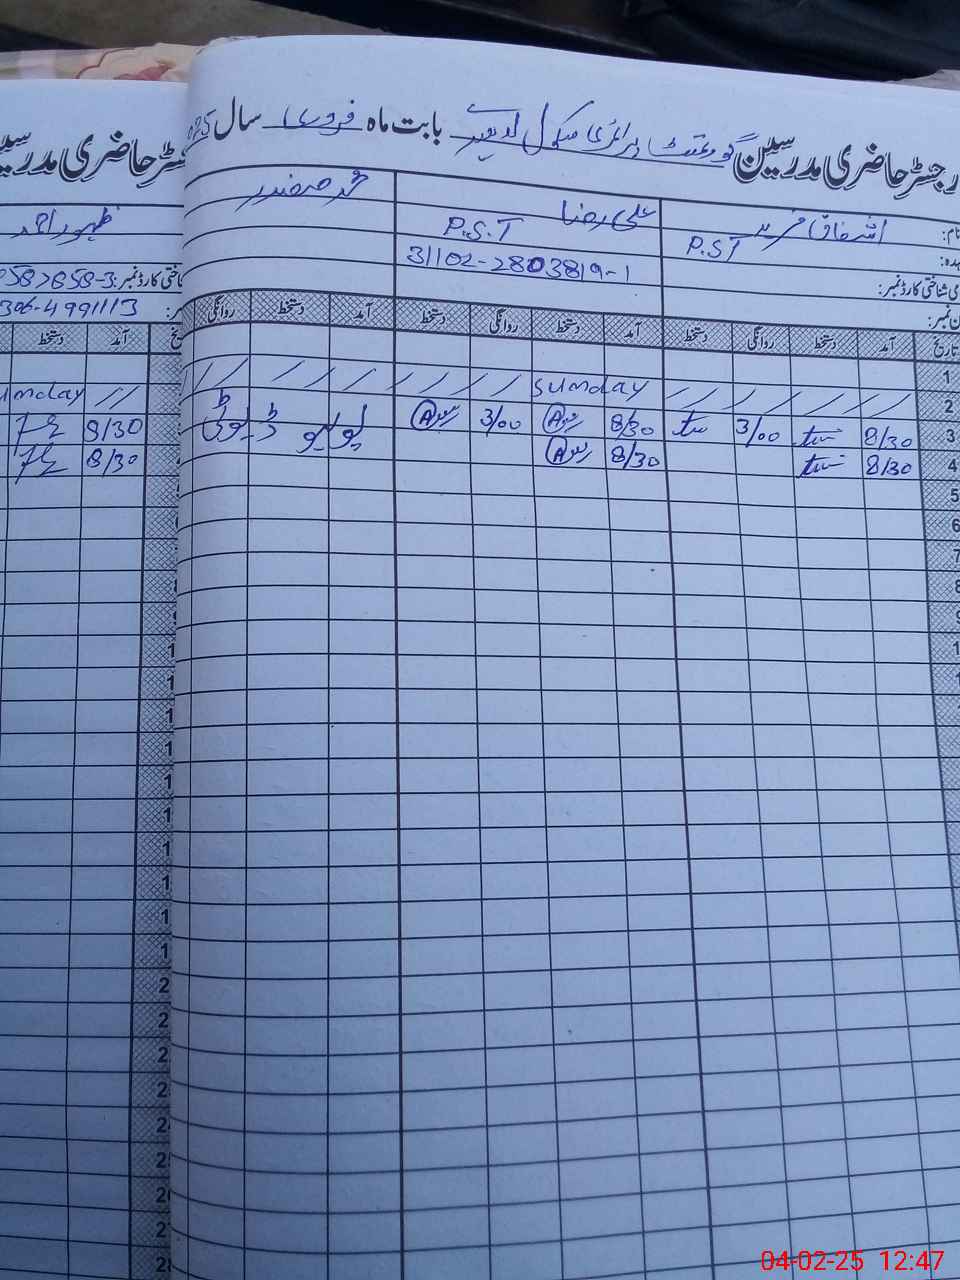 رجسٹر حاضری مدرسین گورنمنٹ پرائمری سکول بابت ماہ فروری سال
نام: اشفاق فرید علی رضا محمد صفدر
P.S.T P.S.T
شناختی کارڈ نمبر: 31102-2803819-1
تاریخ آمد دستخط روانگی دستخط آمد دستخط روانگی دستخط آمد دستخط روانگی
1
2 Sunday
3 8/30 3/00 8/30 3/00 پولیو ڈیوٹی
4 8/30 8/30
5
6
7
8
رجسٹر حاضری مدرسین
ظہور احمد
شناختی کارڈ نمبر:
306-4991113
آمد دستخط
8/30
8/30
04-02-25 12:47